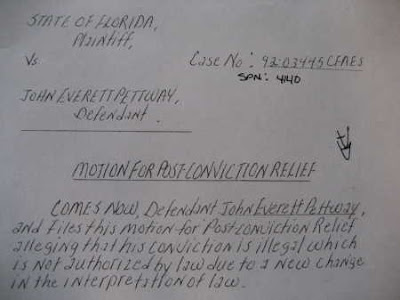 STATE OF FLORIDA,
Plaintiff,
Vs
Case No: 92-03445CFAES
SPN: 4140
JOHN EVERETT PETTWAY,
Defendant.
MOTION FOR POST CONVICTION RELIEF
COMES NOW, Defendant John Everett Pettway,
and files this motion for Postconviction Relief
alleging that his conviction is illegal which
is not authorized by law due to a new change
in the interpretation of law.